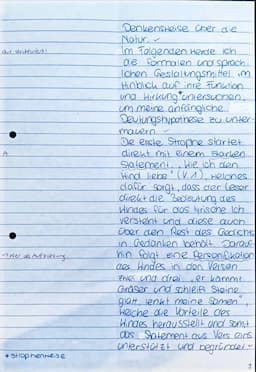 Denkensweise über die
Natur. -
Im Folgenden werde ich
die formalen und sprach-
lichen Gestaltungsmittel im
Hinblick auf ihre Funktion
und Wirkung* untersuchen,
um meine anfängliche
Deutungshypothese zu unter-
mauern. -
Die erste Strophe startet
direkt mit einem starken
Statement, "Wie ich den
Wind liebe" (V.1), welches
dafür sorgt, dass der Leser
direkt die Bedeutung des
Windes für das lyrische Ich
versteht und diese auch
über den Rest des Gedichts
in Gedanken behält. Darauf-
hin folgt eine Personifikation
des Windes in den Versen
zwei und drei "er kämmt
Gräser und schleift Steine
glatt, lenkt meine Samen",
welche die Vorteile des
Windes herausstellt und somit
das Statement aus Vers eins
unterstützt und begründet -
*strophenweise